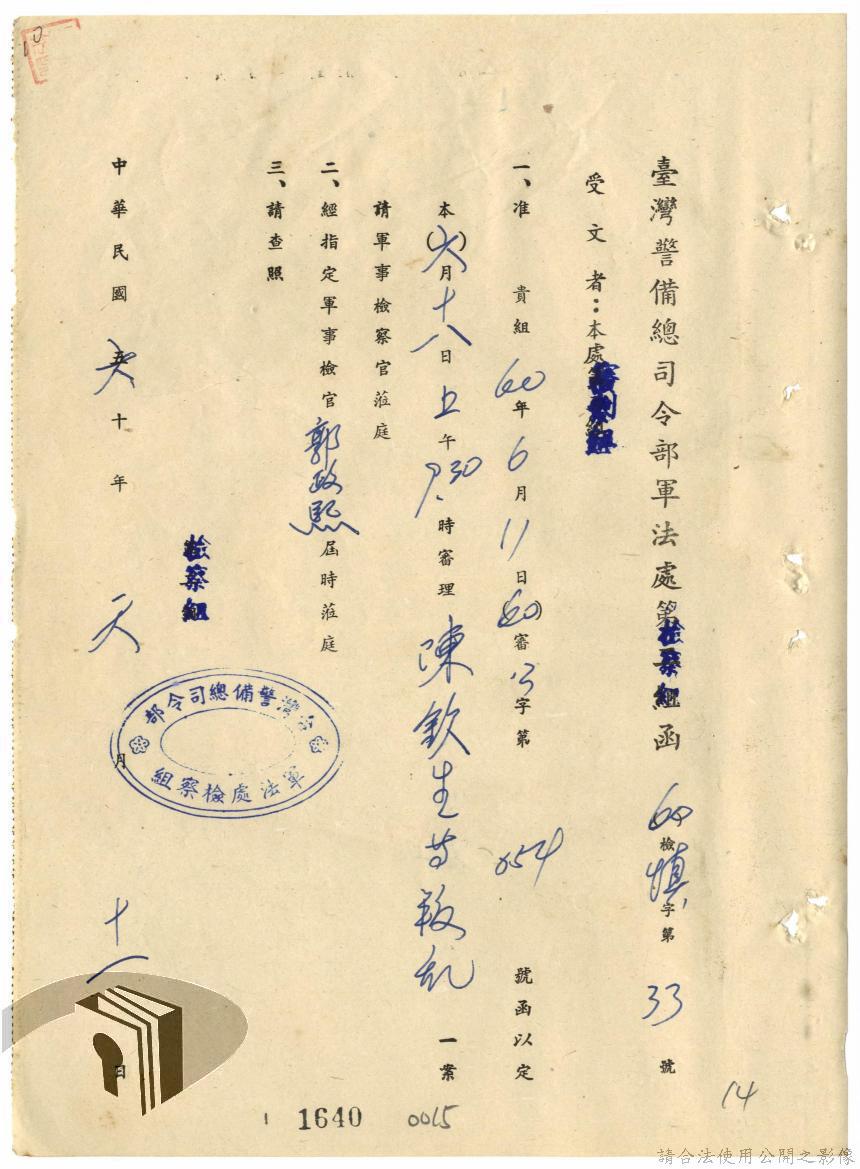 臺灣警備總司令部軍法處檢察組函 (60)檢慎字第33號
受文者：本處審判組
一、准 貴組60年6月11日(60)審字第054號函以定
本(六)月十八日上午9.30時審理陳欽生等叛乱一案
請軍事檢察官蒞庭
二、經指定軍事檢官郭政熙屆時蒞庭
三、請查照
檢察組
中華民國六十年六月十一日
台灣警備總司令部
軍法處檢察組
1640
0015
14
請合法使用公開之影像